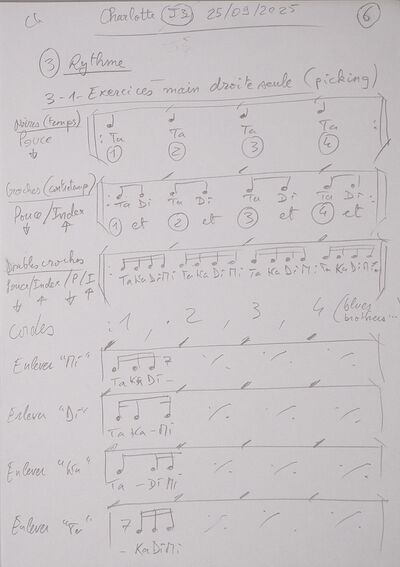 Ch Charlotte J3 25/09/2025 6
3 Rythme
3-1-Exercices main droite seule (picking)
Noires (temps)
Pouce
Ta Ta Ta Ta
1 2 3 4
Croches (contretemps)
Pouce/Index
Ta Di Ta Di Ta Di Ta Di
1 et 2 et 3 et 4 et
Doubles croches
Pouce/Index/P/I
Ta Ka Di Mi Ta Ka Di Mi Ta Ka Di Mi Ta Ka Di Mi
Cordes : 1, 2, 3, 4 (blues brothers...)
Enlever "Mi"
Ta Ka Di -
Enlever "Di"
Ta Ka - Mi
Enlever "Ka"
Ta - Di Mi
Enlever "Ta"
- Ka Di Mi